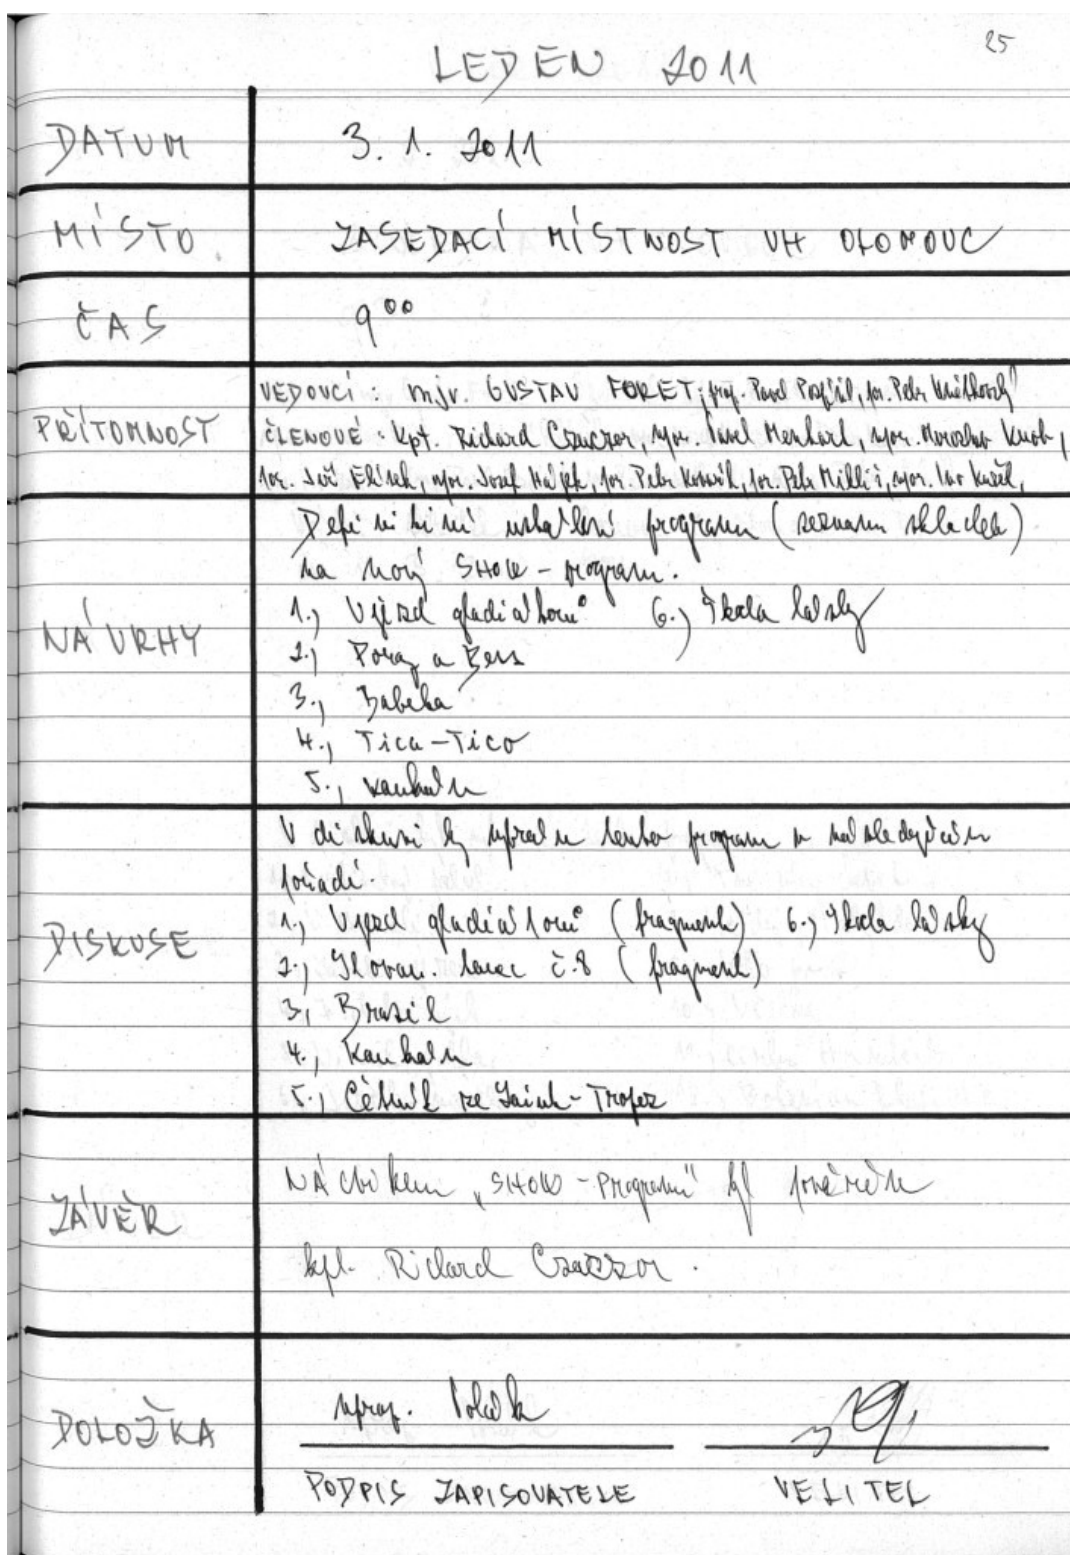 25
LEDEN 2011
DATUM 3. 1. 2011
MÍSTO ZASEDACÍ MÍSTNOST VH OLOMOUC
ČAS 9 00
VEDOUCÍ: mjr. GUSTAV FORET, prap. Pavel Pospíšil, por. Petr
PŘÍTOMNOST ČLENOVÉ: Kpt. Richard Czuczor, npor. Pavel Menhart, npor. Miroslav
por. Jiří Elísek, npor. Josef Hájek, por. Petr por. Petr npor. Ivo
Definitivní ustálení programu (seznam skladeb)
na nový SHOW - program.
NÁVRHY
1., Vjezd gladiátorů 6.) Škola lásky
2., Porgy a Bess
3., Babeta
4., Tica-Tico
5., kankán
V diskusi byl vybrán tento program v následujícím
pořadí.
DISKUSE
1., Vjezd gladiátorů (fragment) 6.) Škola lásky
2., Slovan. tanec č.8 (fragment)
3., Brasil
4., Kankán
5., Četník ze Saint-Tropez
ZÁVĚR
NÁcvikem „SHOW - Programu" byl pověřen
kpt. Richard Czuczor.
DOLOŽKA
nprap. Polák
PODPIS ZAPISOVATELE VELITEL